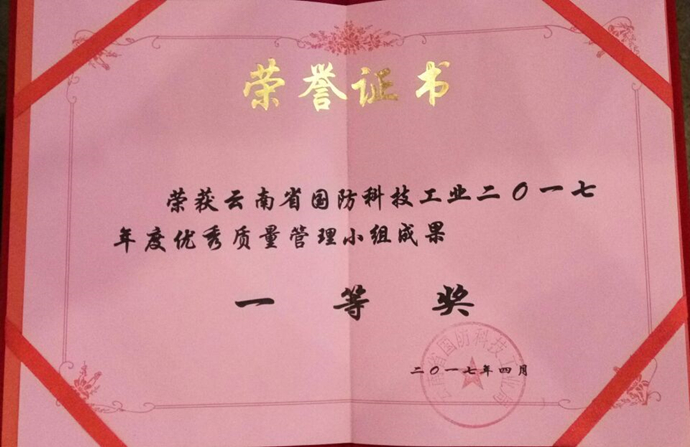 荣誉证书
荣获云南省国防科技工业二〇一七
年度优秀质量管理小组成果
一等奖
云南省国防科技工业局
二〇一七年四月